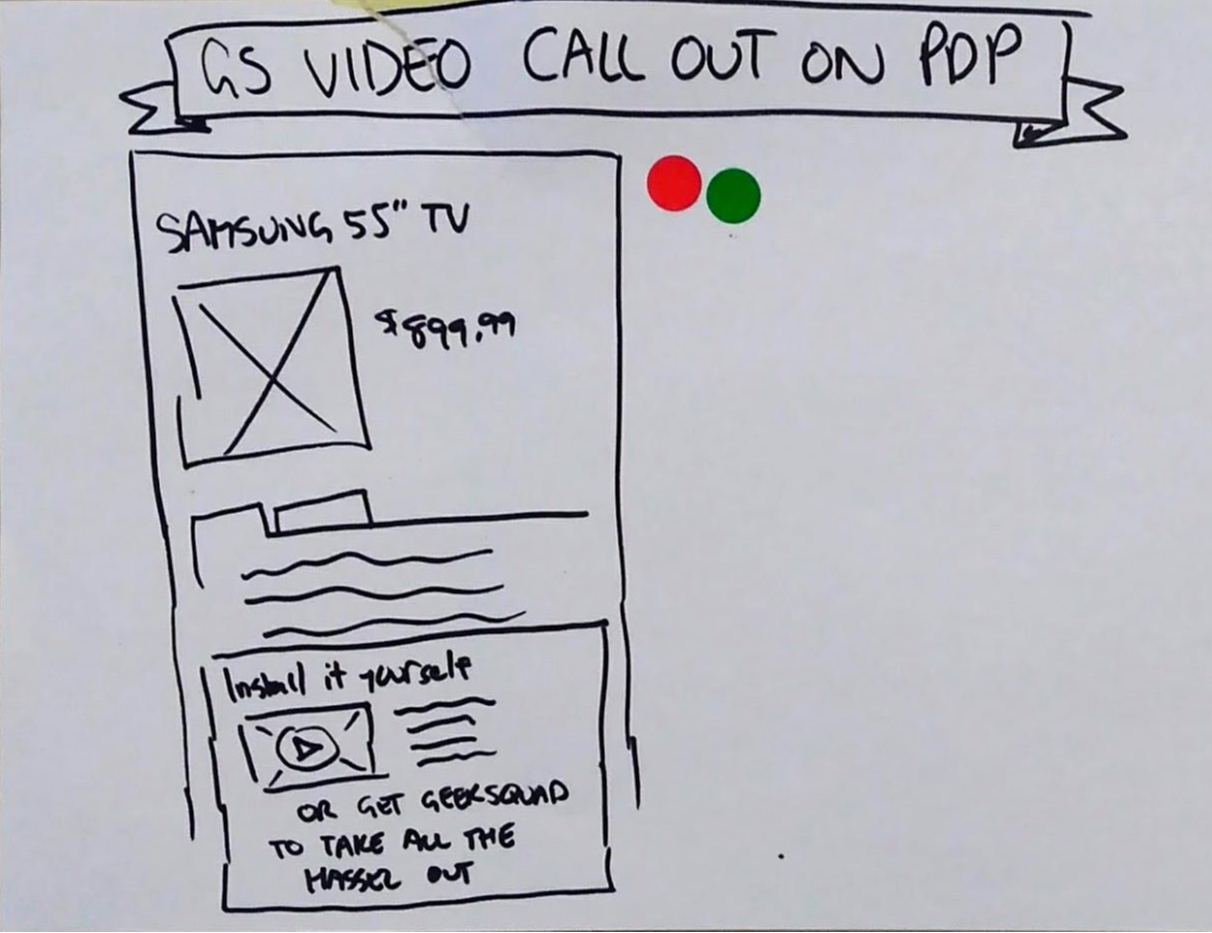 GS VIDEO CALL OUT ON PDP
SAMSUNG 55" TV
$899.99
Install it yourself
OR GET GEEKSQUAD
TO TAKE ALL THE
HASSEL OUT